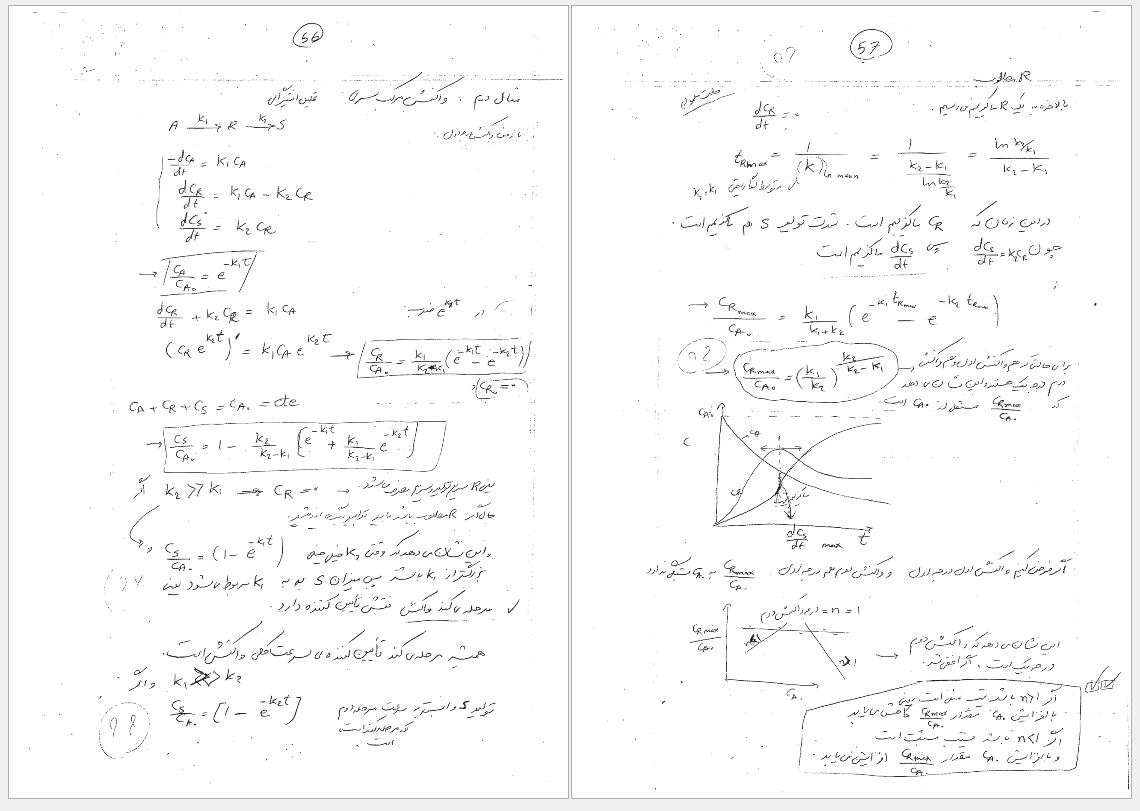 56
مثال دوم : واکنش مرکب سری
A →k₁ R →k₂ S
-dCA/dt = k₁CA
dCR/dt = k₁CA - k₂CR
dCS/dt = k₂CR
→ CA/CA₀ = e^(-k₁t)
dCR/dt + k₂CR = k₁CA در e^(k₂t) ضرب
(CR e^(k₂t))' = k₁CA e^(k₂t) → CR/CA₀ = k₁/(k₂-k₁) (e^(-k₁t) - e^(-k₂t))
CR₀ = 0
CA + CR + CS = CA₀ = cte
→ CS/CA₀ = 1 - k₂/(k₂-k₁) [e^(-k₁t) + k₁/(k₂-k₁) e^(-k₂t)]
اگر k₂ >> k₁ → CR = 0 → یعنی R سریع تولید و سریع مصرف می‌شود.
CS/CA₀ = (1 - e^(-k₁t)) و این نشان می‌دهد که وقتی k₂ خیلی
بزرگتر از k₁ باشد پس میزان S به k₁ مربوط می‌شود یعنی
مرحله‌ی کند واکنش نقش تأیین کننده دارد.
همیشه مرحله‌ی کند تأیین کننده‌ی سرعت کلی واکنش است.
و اگر k₁ >> k₂
CS/CA₀ = [1 - e^(-k₂t)] تولید S وابسته به سرعت مرحله دوم
که مرحله کند است
است.
98
57
R مطلوب
dCR/dt = 0
tRmax = 1/(k)ln mean = 1/((k₂-k₁)/(ln k₂/k₁)) = (ln k₂/k₁)/(k₂-k₁)
k₂, k₁ متوسط لگاریتمی
در این زمان که CR ماکزیم است. شدت تولید S هم ماکزیم است.
چون dCS/dt = k₂CR پس dCS/dt ماکزیم است
→ CRmax/CA₀ = k₁/(k₁+k₂) (e^(-k₁tRmax) - e^(-k₂tRmax))
→ CRmax/CA₀ = (k₁/k₂)^(k₂/(k₂-k₁))
برای حالتی که هم واکنش اول و هم واکنش
دوم درجه یک هستند و این نشان می‌دهد
که CRmax/CA₀ مستقل از CA₀ است.
CA₀
C
CA
CR
dCS/dt max
t
اگر فرض کنیم واکنش اول درجه اول و واکنش دوم هم درجه اول CRmax/CA₀ به CA₀ بستگی ندارد
درجه واکنش دوم = n = 1
CRmax/CA₀
n<1
n>1
CA₀
این نشان می‌دهد که واکنش دوم
درجه یک است. اگر افقی شد.
اگر n>1 باشد شیب منفی است یعنی
با افزایش CA₀ مقدار CRmax/CA₀ کاهش می‌یابد
اگر n<1 باشد شیب مثبت است
و با افزایش CA₀ مقدار CRmax/CA₀ افزایش می‌یابد.